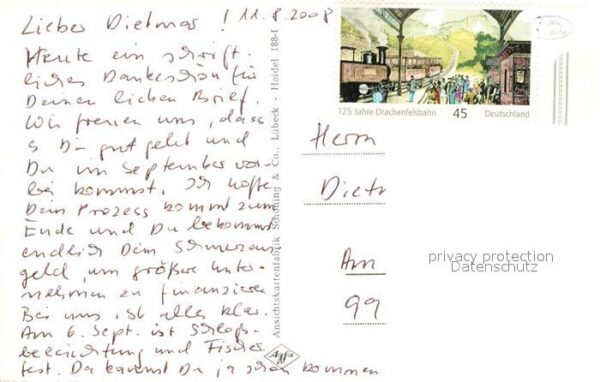 Lieber Dietmar! 11.8.2008
Heute ein schrift-
liches Dankeschön für
Deinen lieben Brief.
Wir freuen uns, dass
es Dir gut geht und
Du im September vor-
bei kommst. Ich hoffe
Dein Prozess kommt zum
Ende und Du bekommst
endlich Dein Schmerzens-
geld, um größere Unter-
nehmen zu finanzieren
Bei uns ist alles klar.
Am 6. Sept. ist Schloß-
beleuchtung und Fischer-
fest. Da kannst Du ja schon kommen
Ansichtskartenfabrik Schöning & Co., Lübeck - Heidel 188-f
Agfa
125 Jahre Drachenfelsbahn 45 Deutschland
Herrn
Dietr
Am
99
privacy protection
Datenschutz